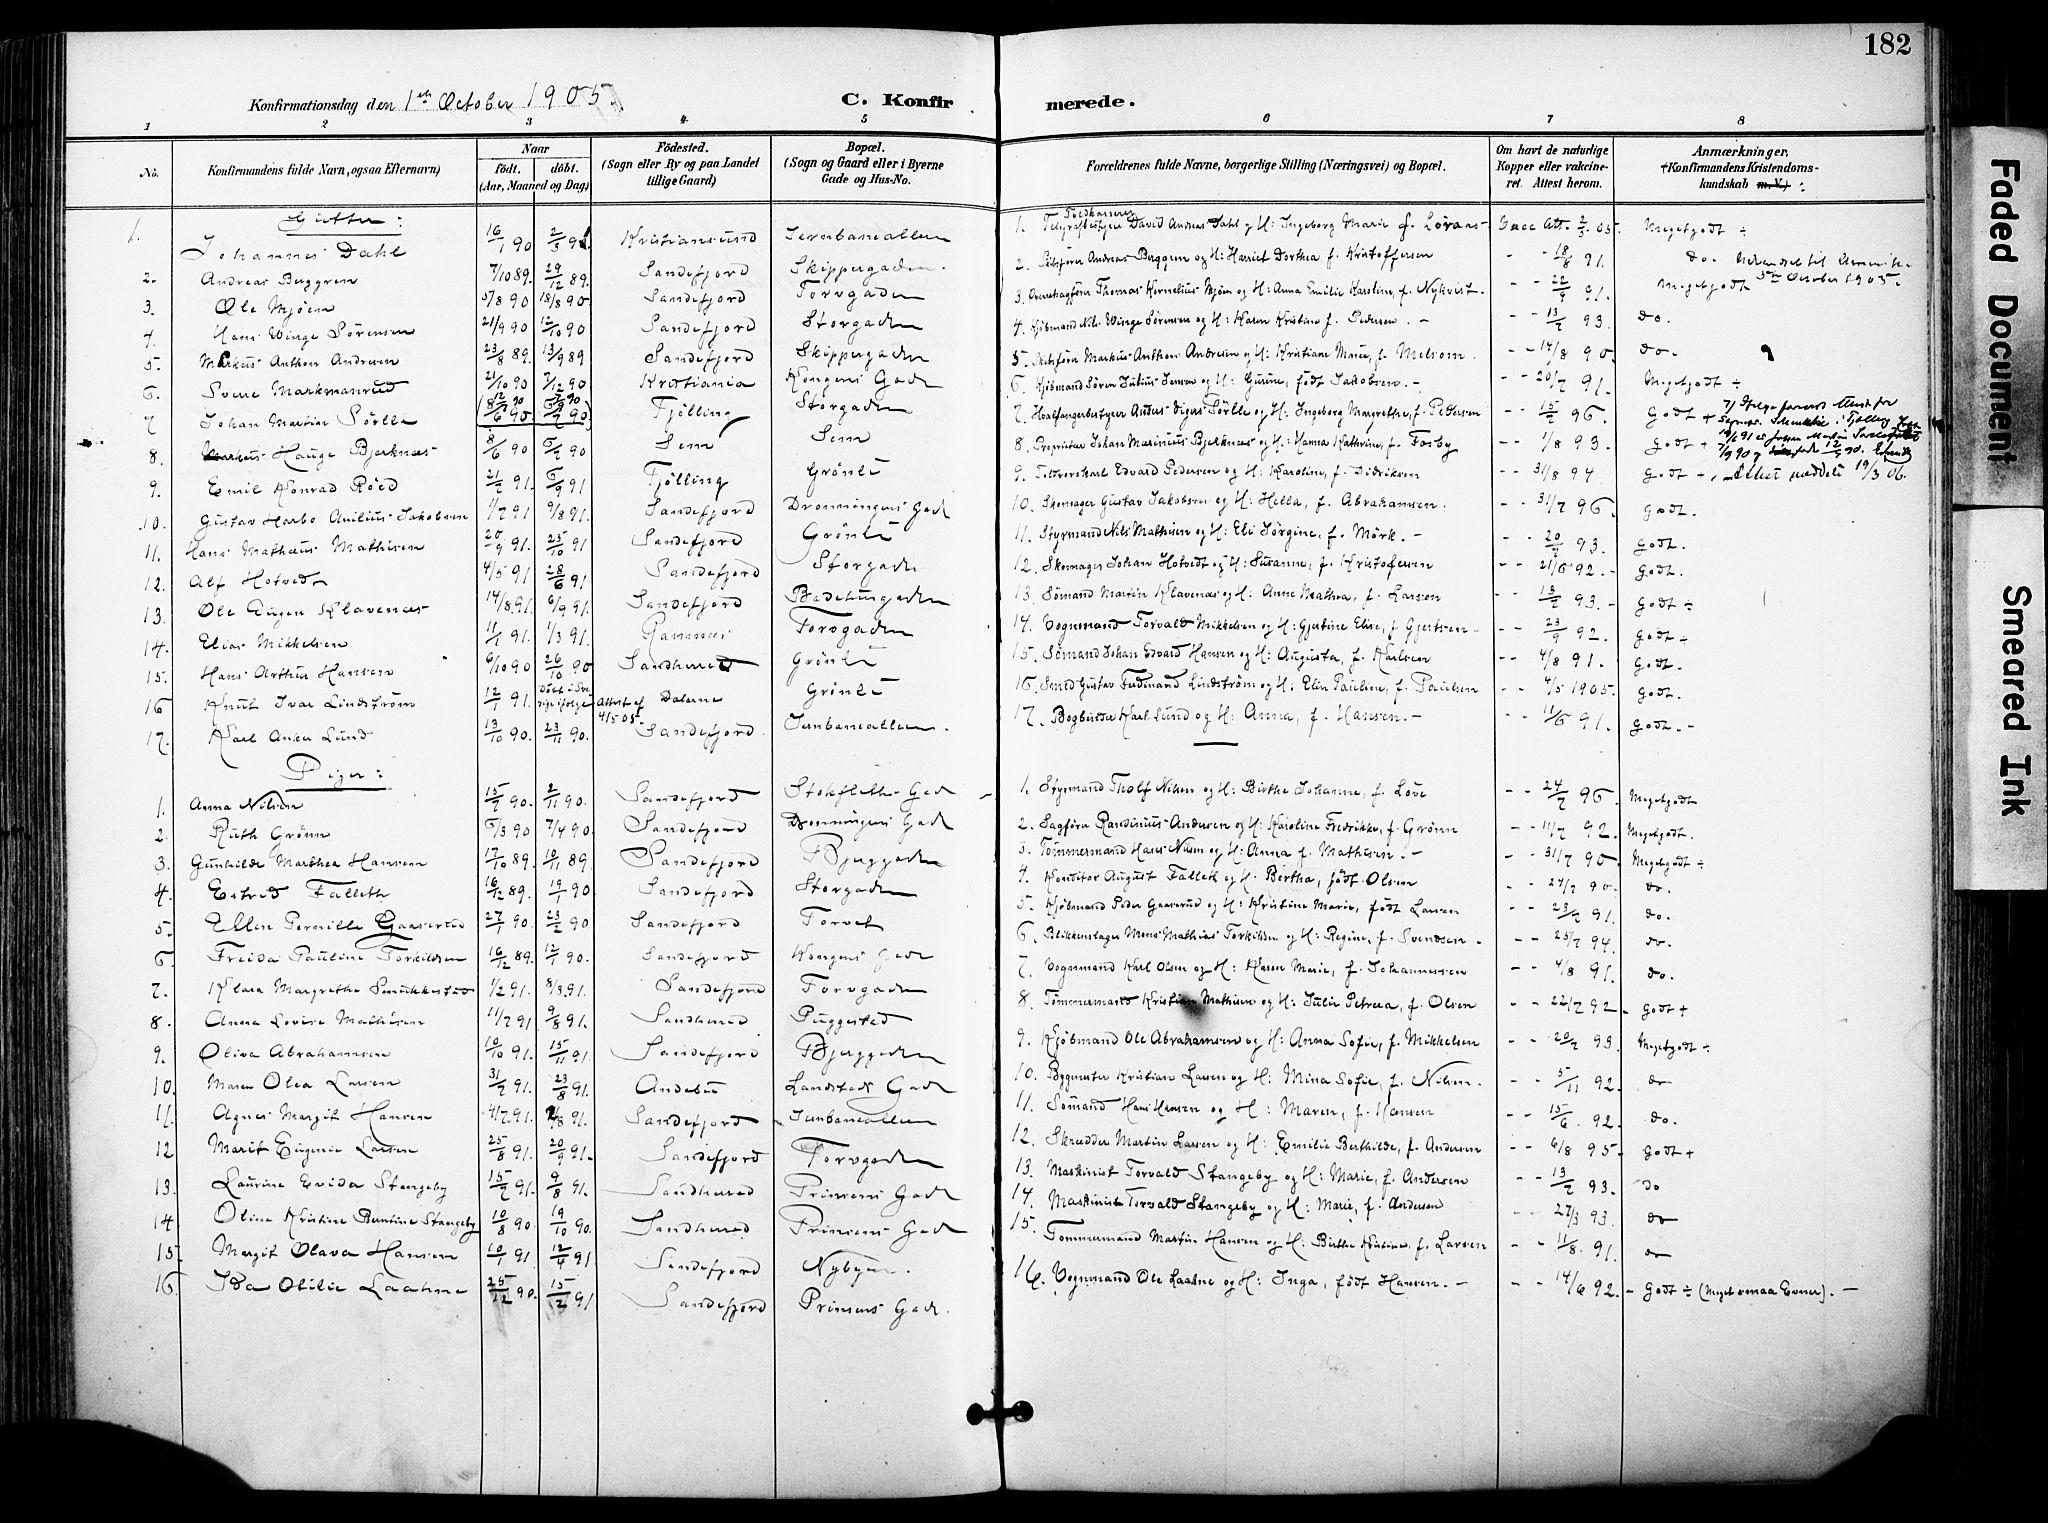 182
Konfirmationsdag den 1ste October 1905.
C. Konfirmerede.
1 2 3 4 5 6 7 8
No. Konfirmandens fulde Navn, ogsaa Efternavn) Naar födt. döbt. (Aar, Maaned og Dag) Födested. (Sogn eller By og paa Landet tillige Gaard) Bopæl. (Sogn og Gaard eller i Byerne Gade og Hus-No. Forældrenes fulde Navne, borgerlige Stilling (Næringsvei) og Bopæl. Om havt de naturlige Kopper eller vakcineret. Attest herom. Anmærkninger. (Konfirmandens Kristendomskundskab m. V.) :
Gutter :
1. Johannes Dahl 16/1 90 Kristiansund Jernbanealleen 1. David Andreas Dahl og H: Ingeborg Marie f. Att. 2/5 05. Megetgodt ÷
2. Andreas Berggren 7/10 89. 29/12 89. Sandefjord Skippergaden. 2. Andreas Berggren og H: Harriet Dorthea f. Kristoffersen - - 18/8 91. do.
5te October 1905.
3. Ole Mjöen 5/8 90 18/8 90. Sandefjord Torvgaden 3. Thomas Kornelius Mjöen og H: Anna Emilie Karoline, f. Nykvist. - - 22/9 91. Megetgodt
4. Hans Winge Sörensen 21/9 90 12/10 90 Sandefjord Storgaden 4. Kjöbmand Nils Winge Sörensen og H: Karen Kristine f. Pedersen. - - - 13/2 93. do.
5. Markus Anthon Andresen 23/8 89. 13/9 89 Sandefjord Skippergaden 5. Skibsförer Markus Anthon Andresen og H: Kristiane Marie, f. Melsom. - - 14/8 90 do.
6. Sverre Markmanrud 21/10 90 7/12 90 Kristiania Kongens Gade 6. Kjöbmand Sören Julius Jensen og H: Gurine, födt Jakobsen. - - - 20/7 91. Megetgodt ÷
7 Johan Martin Sörlle Fjölling Storgaden 7. Hvalfangerbestyrer Anders Sörlle og H: Ingeborg Margrethe, f. Pedersen - - 15/2 96 Godt +
8. Markus Hauge Bjerknæs 8/6 90 6/7 90 Sem Sem 8. Johan Marinius Bjerknæs og H: Hanna Kathrine, f. Fosby - - 1/8 93. Godt +
9. Emil Konrad Röed 21/2 91. 6/9 91 Fjölling Grönli 9. Edvard Pedersen og H: Karoline, f. Didriksen - - 31/8 94 Godt +, - Attest meddelt 19/3 06.
10. Gustav Harbo Anilius Jakobsen 1/7 91 9/8 91. Sandefjord Dronningens Gad 10. Skomager Gustav Jakobsen og H: Hella, f. Abrahamsen. - - 31/7 96. Godt.
11. Hans Mathæus Mathisen 20/9 91. 25/10 91 Sandefjord Grönli 11. Styrmand Nils Mathisen og H: Eli Jörgine, f. Mörk. - - - 20/7 93. Godt.
12. Alf Hotvedt 4/5 91 28/6 91 Sandefjord Storgaden 12. Skomager Johan Hotvedt og H: Susanne, f. Kristofersen - - 21/6 92. - Godt.
13. Ole Eugen Klavenæs 14/8 91. 6/9 91. Sandefjord Badehusgaden 13. Sömand Martin Klavenæs og H: Anne Mathea, f. Larsen - - 13/2 93. - Godt ÷
14. Elias Mikkelsen 11/1 91. 1/3 91. Ramnæs Torvgaden 14. Vognmand Torvald Mikkelsen og H: Gjertine Elise, f. Gjertsen - - - 23/9 92. Godt ÷
15. Hans Arthur Hansen 6/10 90 26/10 90 Sandherred Grönli 15. Sömand Johan Edvard Hansen og H: Augusta, f. Karlsen - - 4/8 91. - Godt.
16 Knut Ivar Lindström 12/1 91. Döbt i Sverige ifölge Attest af 4/5 05. Dalarne Grönli 16. Smed Gustav Ferdinand Lindström og H: Elin Pauline, f. Paulsen - - 4/5 1905. Godt.
17. Karl Anker Lund 13/10 90. 23/11 90. Sandefjord. Jernbanealleen. 17. Bogbinder Karl Lund og H: Anna, f. Hansen. - - - 11/6 91. Godt. -
Piger :
1. Anna Nilsen 15/9 90. 2/11 90. Sandefjord Stokfleths Gad 1. Styrmand Tholf Nilsen og H: Birthe Johanne, f. Löve - - 24/7 96. Megetgodt
2. Ruth Grönn 6/3 90 7/4 90. Sandefjord Dronningens Gad 2. Sagförer Randinius Andersen og H: Karoline Fredrikke, f. Grönn - - 11/7 92. Megetgodt.
3. Gunhilda Marthea Hansen 17/10 89. 10/11 89. Sandefjord Bjerggaden 3. Tömmermand Hans Nilsen og H: Anna f. Mathisen. - - - 31/7 90. Megetgodt ÷
4. Estrid Falleth 16/12 89. 19/1 90 Sandefjord Storgaden 4. Konditor August Falleth og H. Birtha, födt Olsen - - 24/7 90. do.
5. Ellen Pernille Gaaserud 27/1 90. 23/2 90 Sandefjord Torvet 5. Kjöbmand Peder Gaaserud og H: Kristine Marie, födt Larsen - - 23/7 91. do.
6. Freida Pauline Torkildsen 16/12 89. 12/1 90. Sandefjord Kongens Gad 6. Blikkenslager Mons Mathias Torkildsen og H: Regine, f. Svendsen. - - 25/7 94. do.
7. Klara Margrethe Smukkestad 1/2 91. 8/3 91. Sandefjord Torvgaden 7. Vognmand Karl Olsen og H: Karen Marie, f. Johannessen - - 4/8 91. do.
8. Anna Lovise Mathisen 11/7 91 9/8 91. Sandherred Puggestad 8. Tömmermand Kristian Mathisen og H: Julie Petrea, f. Olsen - - 22/7 92. Godt +
9. Oliva Abrahamsen 10/10 91. 15/11 91. Sandefjord Bjerggaden 9. Kjöbmand Ole Abrahamsen og H: Anna Sofie, f. Mikkelsen - - 20/2 93. Megetgodt ÷
10. Maren Olea Larsen 31/5 91. 23/8 91. Andebu Landstads Gad 10. Bygmester Kristian Larsen og H: Mina Sofie, f. Nilsen. - - 5/11 92. do
11. Agnes Margit Hansen 4/7 91. 2/8 91. Sandefjord Jernbanealleen 11. Sömand Hans Hansen og H: Maren, f. Hansen - - 15/6. 92. do.
12 Marit Eugenie Larsen 25/8 91. 20/9 91. Sandefjord Torvgaden 12. Skrædder Martin Larsen og H: Emilie Berthilde, f. Andersen - - 6/8 95 - Godt +
13. Laurine Evida Stangeby 15/7 91. 9/8 91. Sandherred Prinsens Gad 13. Maskinist Torvald Stangeby og H: Marie, f. Andersen - - 13/2 93. do
14 Oline Kristine Bentine Stangeby 10/8 90. 19/10 90. Sandherred Prinsens Gad 14. Maskinist Torvald Stangeby og H: Marie, f. Andersen - - 27/3 93. do
15. Margit Olava Hansen 10/1 91. 12/4 91 Sandefjord Nybyen. 15. Tömmermand Martin Hansen og H: Birthe Kristine, f. Larsen - - 11/8. 91. do
16 Ida Otilie Laahne 25/12 90. 15/2 91 Sandefjord Prinsens Gad. 16. Vognmand Ole Laahne og H: Inga, födt Hansen. - - - 14/6 92. - Godt ÷ (Meget smaa Evner). -
Faded Document
Smeared Ink